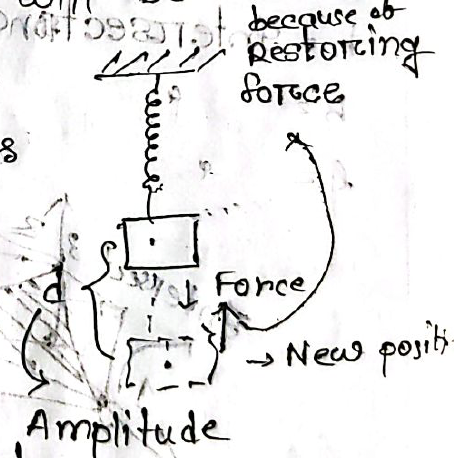 because of
Restoring
force
s
d
Force
→ New positi
Amplitude